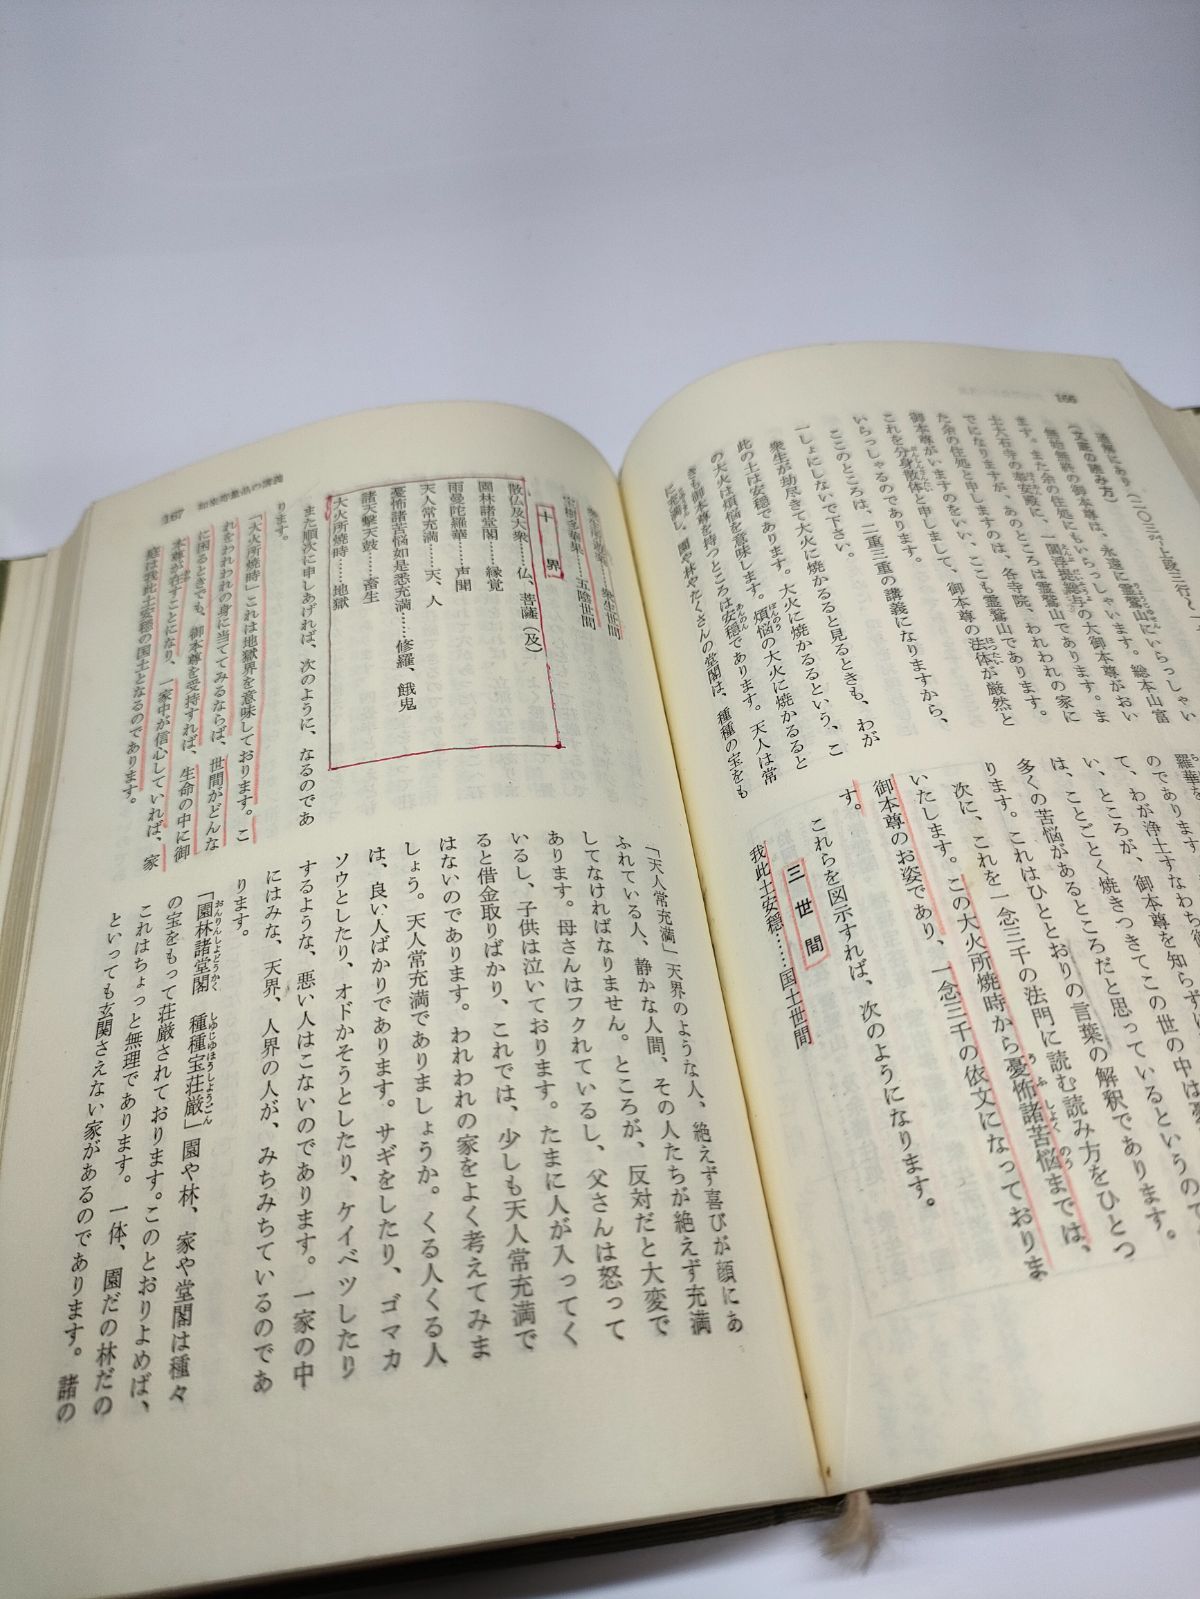 166
通解にあり(二〇三ページ上段三行を
(文底の読み方)
無始無終の御本尊は、永遠に霊鷲山にいらっしゃい
ます。また余の住処にもいらっしゃいます。総本山富
士大石寺の奉安殿に、一閻浮提総与の大御本尊がおい
でになりますが、あのところは霊鷲山であります。ま
た余の住処と申しますのは、各寺院、われわれの家に
御本尊がいますのをいい、ここも霊鷲山であります。
これを分身散体と申しまして、御本尊の法体が厳然と
いらっしゃるのであります。
ここのところは、二重三重の講義になりますから、
一しょにしないで下さい。
衆生が劫尽きて大火に焼かるると見るときも、わが
此の土は安穏であります。大火に焼かるるという、こ
の大火は煩悩を意味します。煩悩の大火に焼かるると
きも御本尊を持つところは安穏であります。天人は常
に充満し、園や林やたくさんの堂閣は、種種の宝をも
羅華を
のであります
て、わが浄土すなわち御
い、ところが、御本尊を知らずに
は、ことごとく焼きつきてこの世の中は憂
多くの苦悩があるところだと思っているというので
ります。これはひととおりの言葉の解釈であります。
次に、これを一念三千の法門に読む読み方をひとつ
いたします。この大火所焼時から憂怖諸苦悩までは、
御本尊のお姿であり、一念三千の依文になっておりま
す。
これらを図示すれば、次のようになります。
三世間
我此土安穏……国土世間
167 如来寿量品の講義
衆生所遊楽……衆生世間
宝樹多華果……五陰世間
十界
散仏及大衆……仏、菩薩(及)
園林諸堂閣……縁覚
雨曼陀羅華……声聞
天人常充満……天、人
憂怖諸苦悩如是悉充満……修羅、餓鬼
諸天撃天鼓……畜生
大火所焼時……地獄
また順次に申しあげれば、次のように、なるのであ
ります。
「大火所焼時」これは地獄界を意味しております。こ
れをわれわれの身に当ててみるならば、世間がどんな
に困るときでも、御本尊を受持すれば、生命の中に御
本尊が在すことになり、一家中が信心していれば、家
庭は我此土安穏の国土となるのであります。
「天人常充満」天界のような人、絶えず喜びが顔にあ
ふれている人、静かな人間、その人たちが絶えず充満
してなければなりません。ところが、反対だと大変で
あります。母さんはフクれているし、父さんは怒って
いるし、子供は泣いております。たまに人が入ってく
ると借金取りばかり、これでは、少しも天人常充満で
はないのであります。われわれの家をよく考えてみま
しょう。天人常充満でありましょうか。くる人くる人
は、良い人ばかりであります。サギをしたり、ゴマカ
ソウとしたり、オドかそうとしたり、ケイベツしたり
するような、悪い人はこないのであります。一家の中
にはみな、天界、人界の人が、みちみちているのであ
ります。
「園林諸堂閣 種種宝荘厳」園や林、家や堂閣は種々
の宝をもって荘厳されております。このとおりよめば、
これはちょっと無理であります。一体、園だの林だの
といっても玄関さえない家があるのであります。諸の